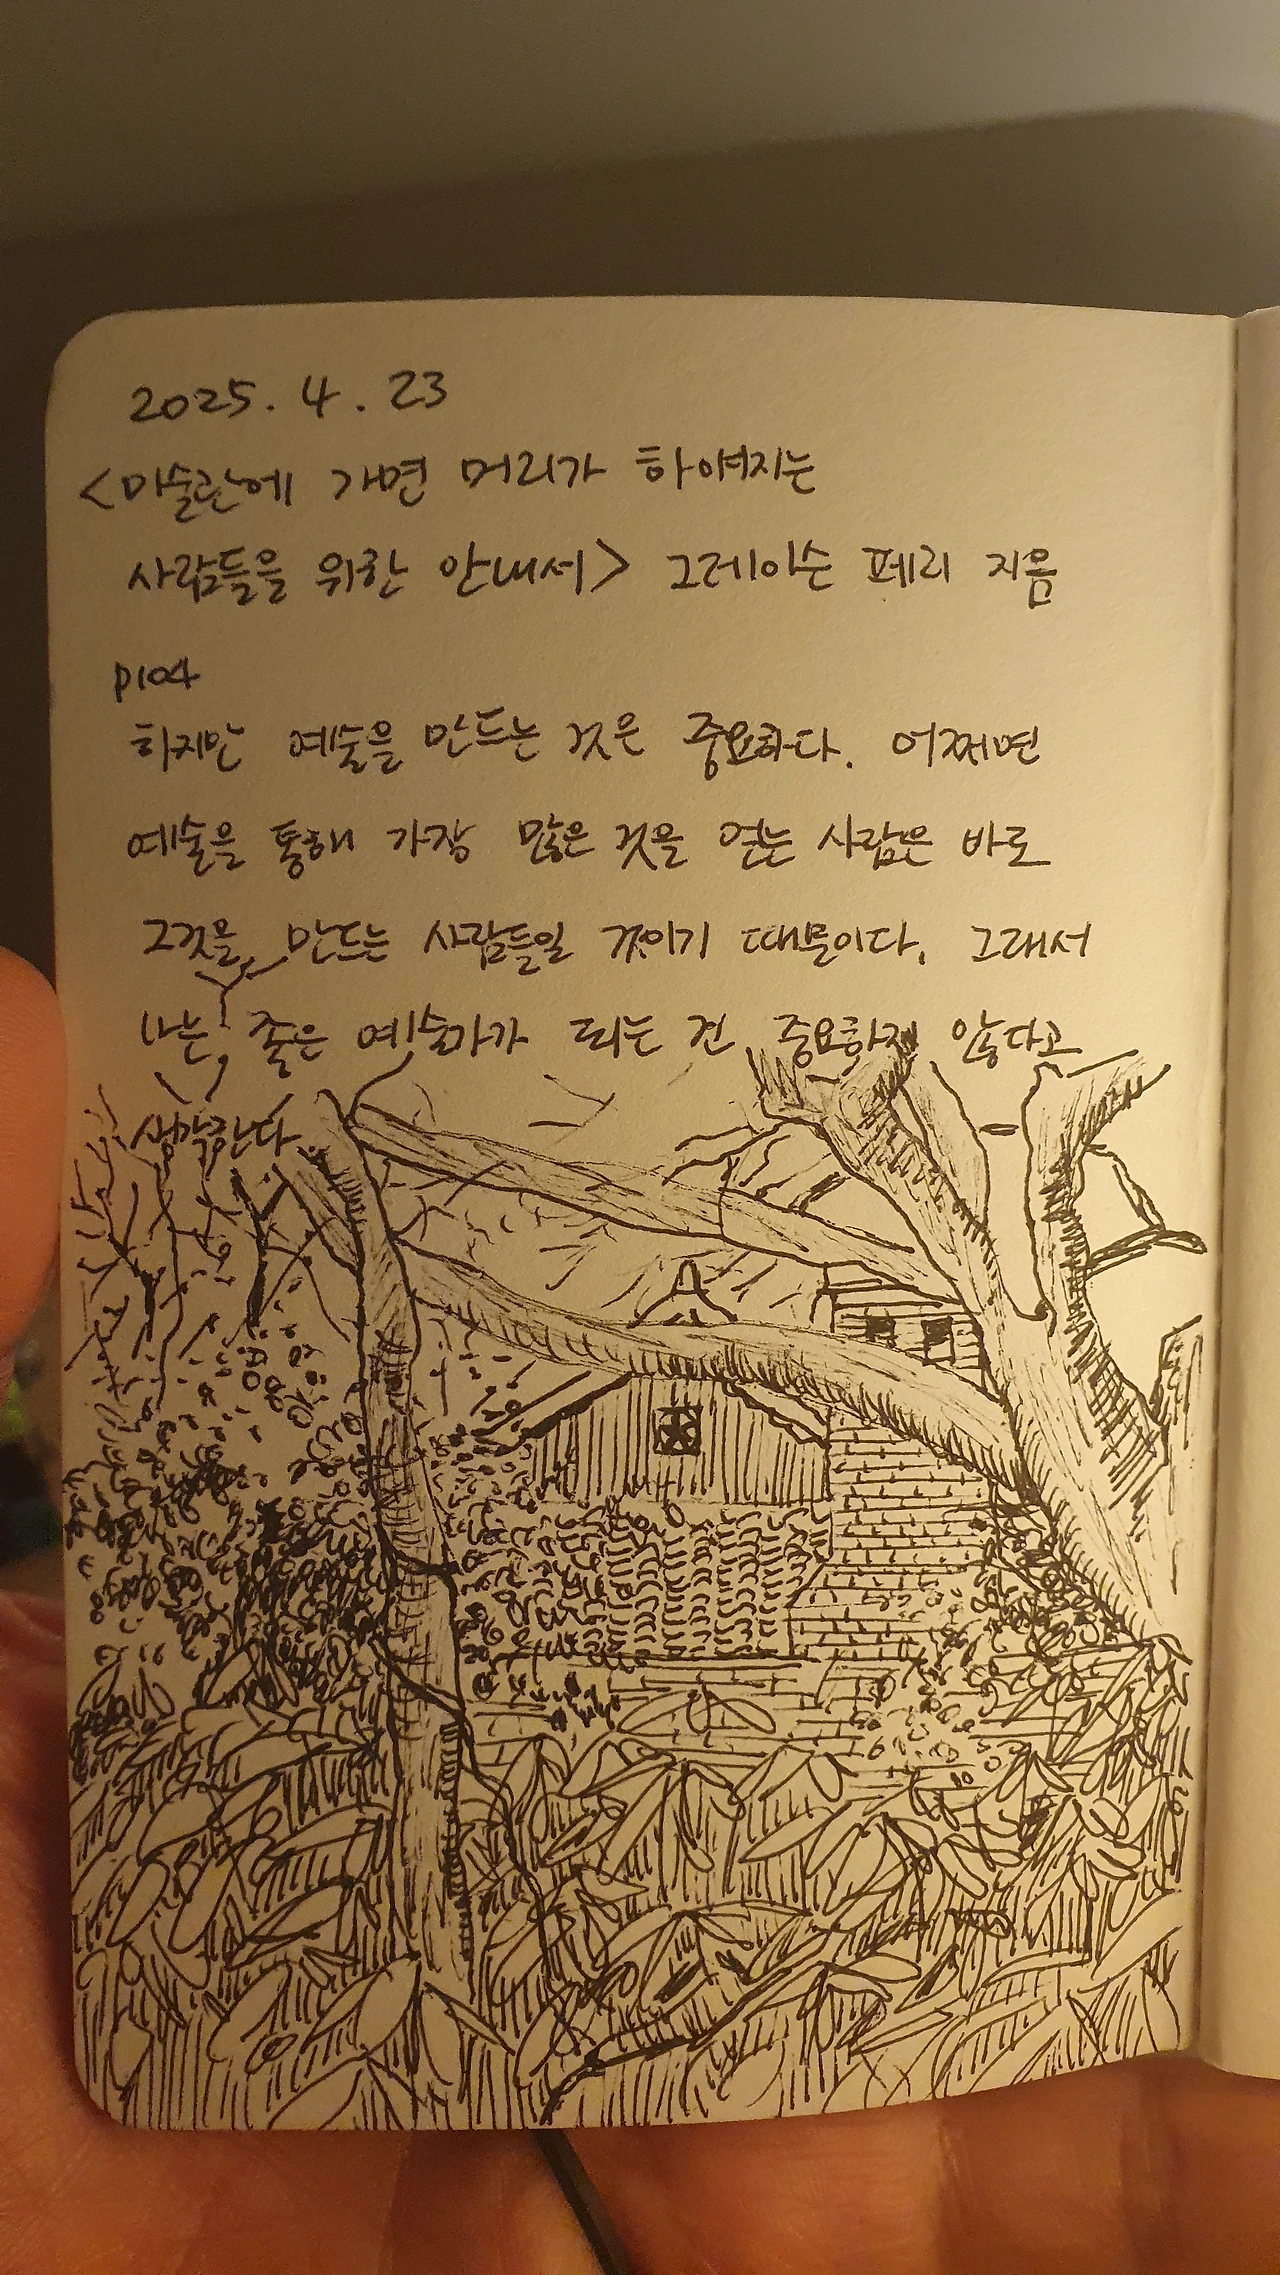 2025. 4. 23
<미술관에 가면 머리가 하얘지는
사람들을 위한 안내서> 그레이슨 페리 지음
p104
하지만 예술을 만드는 것은 중요하다. 어쩌면
예술을 통해 가장 많은 것을 얻는 사람은 바로
그것을 만드는 사람들일 것이기 때문이다. 그래서
나는 좋은 예술가가 되는 건 중요하진 않다고
생각한다.